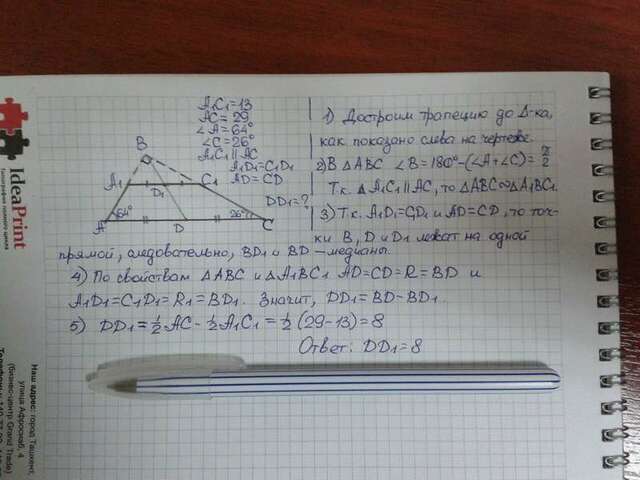 A₁C₁=13
AC=29
∠A=64°
∠C=26°
A₁C₁ ∥ AC
A₁D₁=C₁D₁
AD=CD
DD₁=?
B
A₁
C₁
D₁
64°
26°
A
D
C
1) Достроим трапецию до Δ-ка,
как показано слева на чертеже.
2) В ΔABC ∠B=180°-(∠A+∠C)=π/2
Т.к. A₁C₁ ∥ AC, то ΔABC∾ΔA₁BC₁.
3) Т.к. A₁D₁=CD₁ и AD=CD, то точ-
ки B, D и D₁ лежат на одной
прямой, следовательно, BD₁ и BD – медианы.
4) По свойствам ΔABC и ΔA₁BC₁ AD=CD=R=BD и
A₁D₁=C₁D₁=R₁=BD₁. Значит, DD₁=BD-BD₁.
5) DD₁=½AC-½A₁C₁=½(29-13)=8
Ответ: DD₁=8
IdeaPrint
Типография полного цикла
Наш адрес: город Ташкент,
улица Афросиаб, 4
(бизнес-центр Grand Trade)